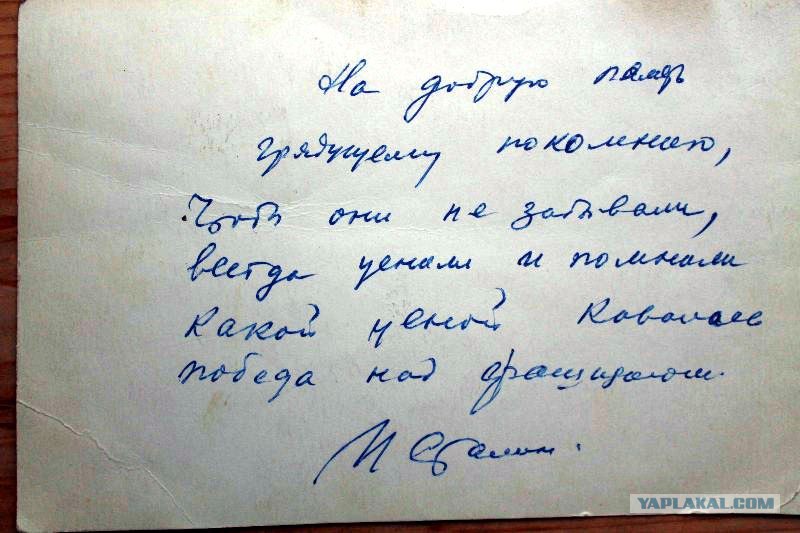 На добрую память
грядущему поколнию,
Чтобы они не забывали,
всегда ценили и помнили
какой ценой ковалась
победа над фашизмом.
И Сталин.
YAPLAKAL.COM